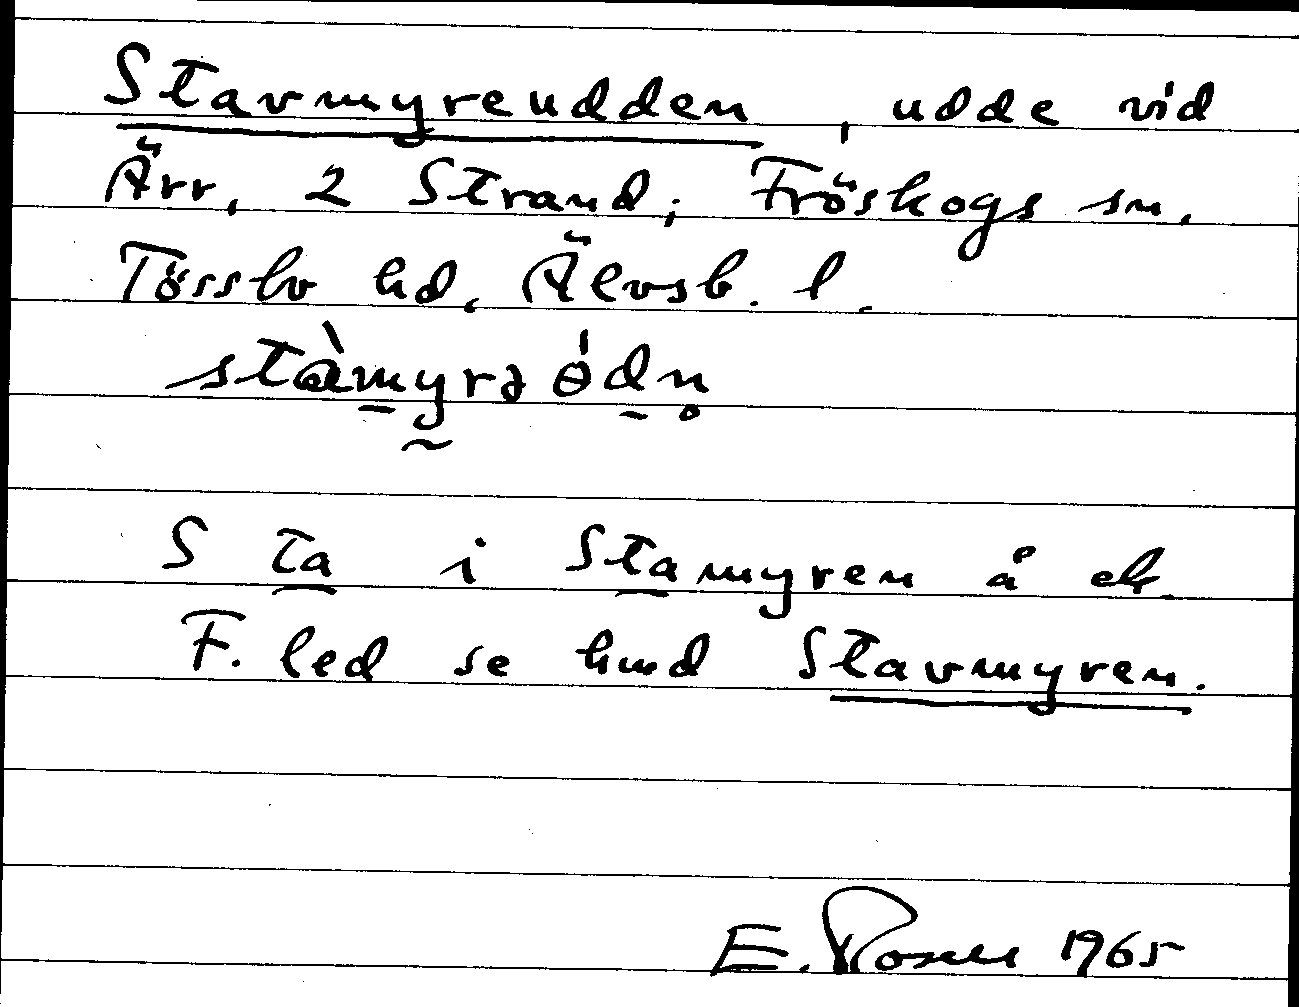 Stavmyreudden, udde vid
Ärr, 2 Strand, Fröskogs sn.
Tössbo hd. Älvsb. l.
stàmyrə ódn̥
S ta i Stamyren å ek.
F. led se hmd Stavmyren.
E. Rosell 1965